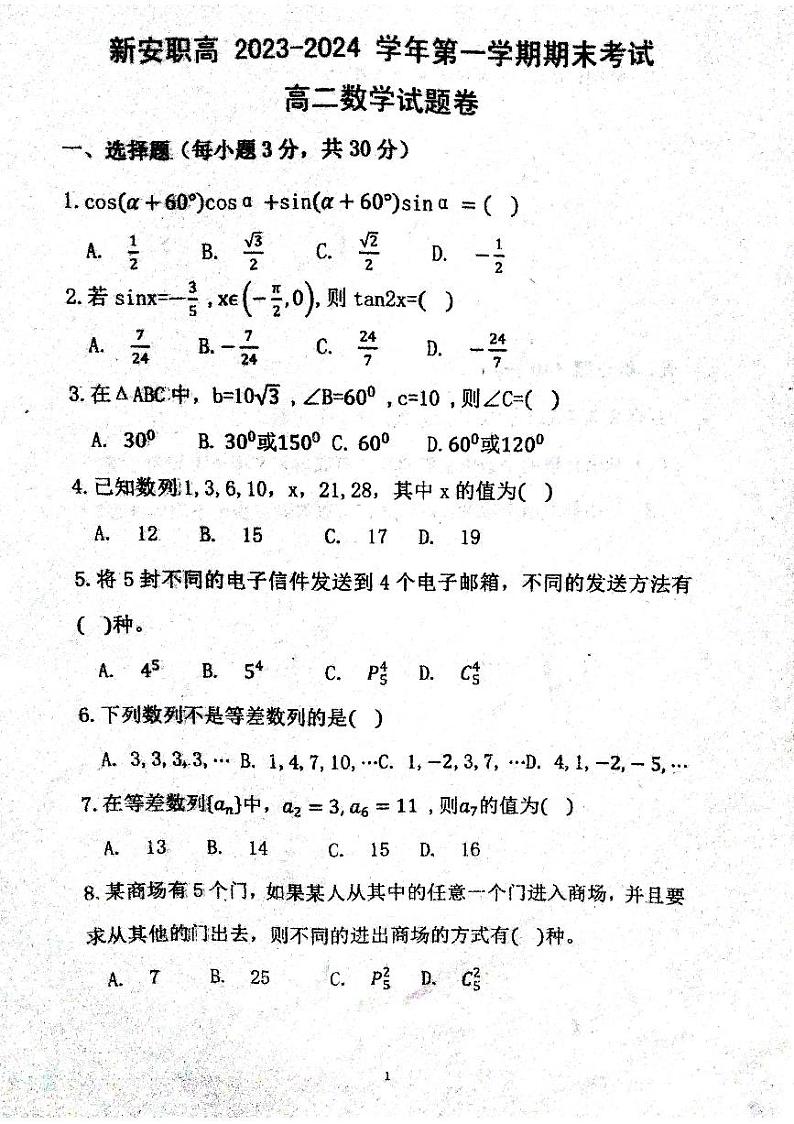 新安职高 2023-2024 学年第一学期期末考试
高二数学试题卷
一、选择题（每小题3分，共30分）
1. cos(α+60°)cosα +sin(α+60°)sinα = ( )
A. 1/2 B. √3/2 C. √2/2 D. −1/2
2. 若 sinx=−3/5 ,xϵ(−π/2,0),则 tan2x=( )
A. 7/24 B.−7/24 C. 24/7 D. −24/7
3. 在△ABC中, b=10√3 ,∠B=60⁰ ,c=10 ,则∠C=( )
A. 30⁰ B. 30⁰或150⁰ C. 60⁰ D. 60⁰或120⁰
4. 已知数列1,3,6,10，x，21,28，其中 x 的值为( )
A. 12 B. 15 C. 17 D. 19
5. 将 5 封不同的电子信件发送到 4 个电子邮箱，不同的发送方法有
( )种。
A. 4⁵ B. 5⁴ C. P₅⁴ D. C₅⁴
6. 下列数列不是等差数列的是( )
A. 3,3,3,3,⋯ B. 1,4,7,10,⋯C. 1,−2,3,7, ⋯D. 4,1,−2,−5,⋯
7. 在等差数列{aₙ}中，a₂ = 3,a₆ = 11 ,则a₇的值为( )
A. 13 B. 14 C. 15 D. 16
8. 某商场有 5 个门，如果某人从其中的任意一个门进入商场，并且要
求从其他的门出去，则不同的进出商场的方式有( )种。
A. 7 B. 25 C. P₅² D. C₅²
1